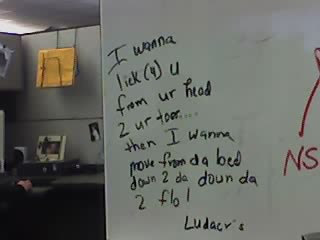 I wanna
lick (4) U
from ur head
2 ur toe....
then I wanna
move from da bed
down 2 da down da
2 flo!
Ludacris
NS